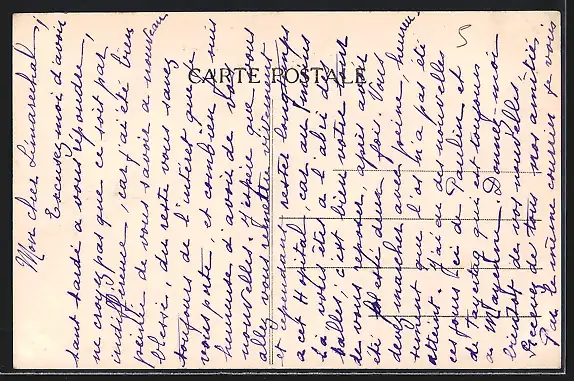 CARTE POSTALE
5
Mon cher Limarechal,
Excusez-moi d'avoir
tant tardé à vous répondre,
ne croyez pas que ce soit par
indifférence, car j'ai été bien
peinée de vous savoir à nouveau
blessé, du reste vous savez
toujours de l'intérêt que je
vous porte, et combien je suis
heureuse d'avoir de vos
nouvelles. J'espère que vous
allez vous
et cependant rester longtemps
à cet Hopital car au moins
là vous êtes à l'abri des
balles, c'est bien votre tour
de vous reposer, après avoir
été deux fois. Vous
devez marcher avec peine, heureu-
sement que l'os n'a pas été
atteint. J'ai eu des nouvelles
ces jours ci de Paulin et
de qui est toujours
à Mayenne. Donnez-moi
bientôt de vos nouvelles
Recevez de tous nos amitiés.
Par le même courrier je vous